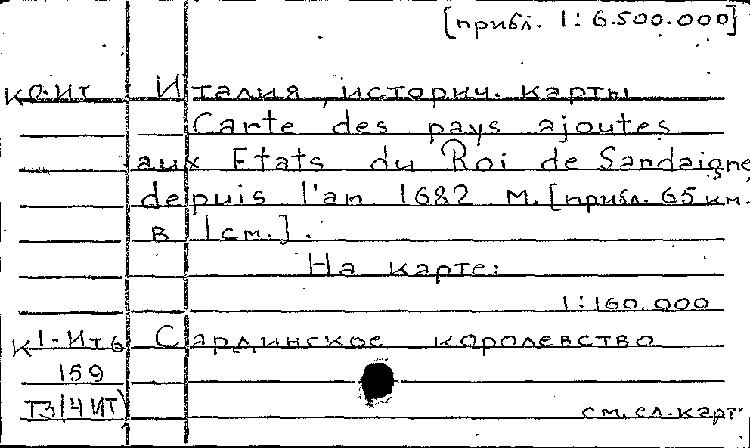 [прибл. 1:6.500.000]
К0-Ит Италия, историч. карты
Carte des pays ajoutes
aux Etats du Roi de Sardaigne
depuis l'an 1682 М. [прибл. 65 км.
в 1 см.].
На карте:
1:160.000
К1-Ит6 Сардинское королевство
159
Т3/4 ИТ) см. сл. карт